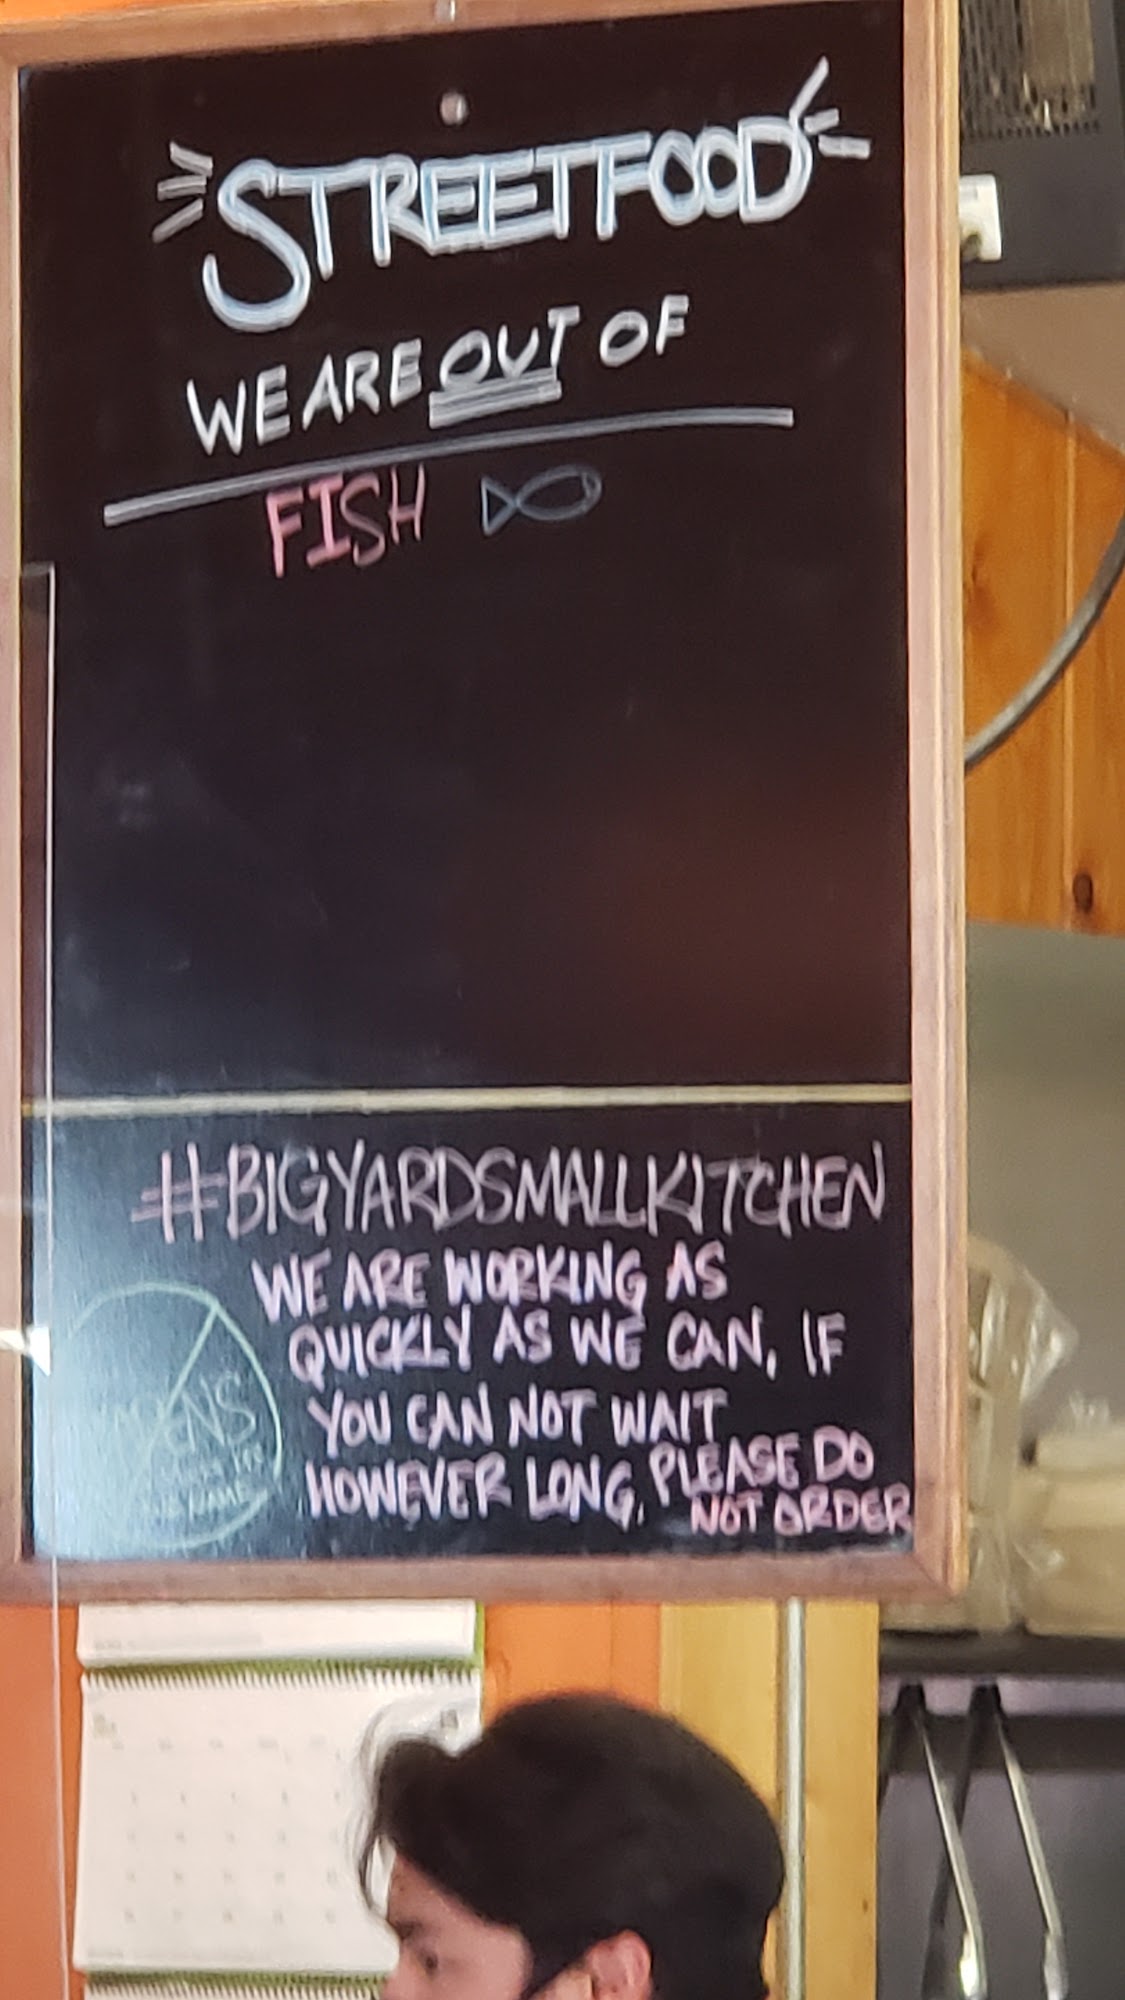 STREETFOOD
WE ARE OUT OF
FISH
#BIGYARDSMALLKITCHEN
WE ARE WORKING AS
QUICKLY AS WE CAN, IF
YOU CAN NOT WAIT
HOWEVER LONG, PLEASE DO
NOT ORDER